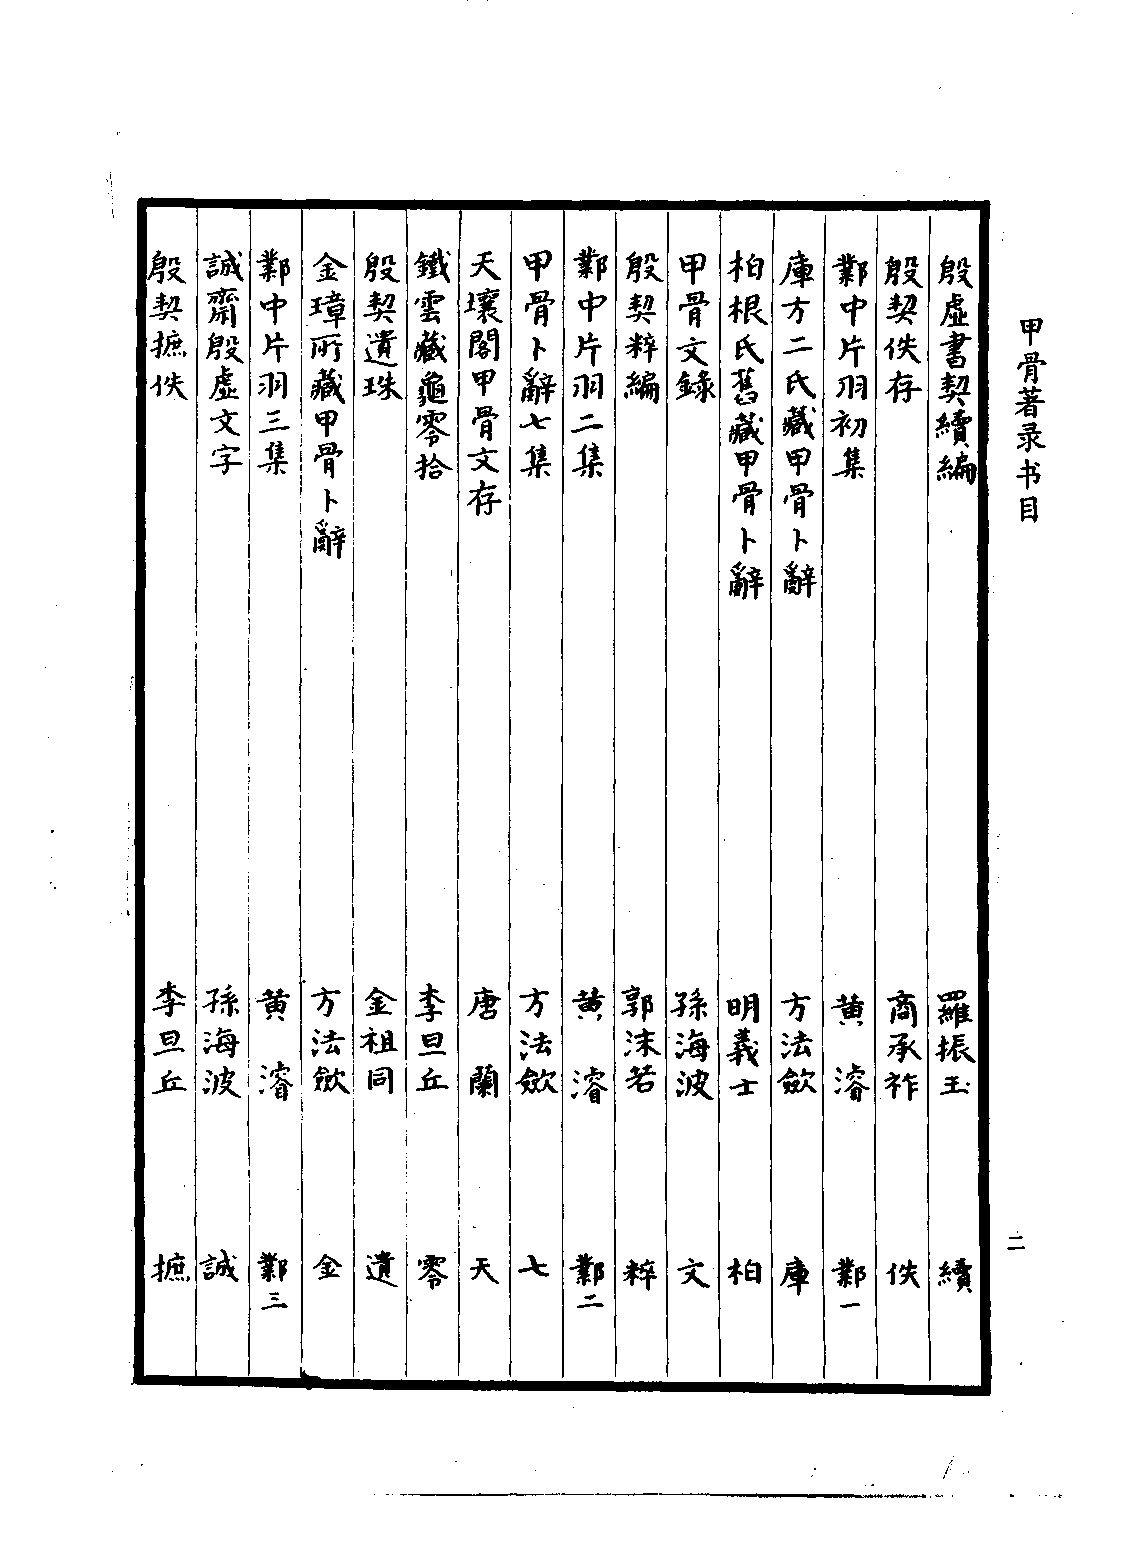 甲骨著录书目
二
殷虛書契續編 羅振玉 續
殷契佚存 商承祚 佚
鄴中片羽初集 黄濬 鄴一
庫方二氏藏甲骨卜辭 方法歛 庫
柏根氏舊藏甲骨卜辭 明義士 柏
甲骨文錄 孫海波 文
殷契粹編 郭沫若 粹
鄴中片羽二集 黄濬 鄴二
甲骨卜辭七集 方法歛 七
天壤閣甲骨文存 唐蘭 天
鐵雲藏龜零拾 李旦丘 零
殷契遺珠 金祖同 遺
金璋所藏甲骨卜辭 方法歛 金
鄴中片羽三集 黄濬 鄴三
誠齋殷虛文字 孫海波 誠
殷契摭佚 李旦丘 摭